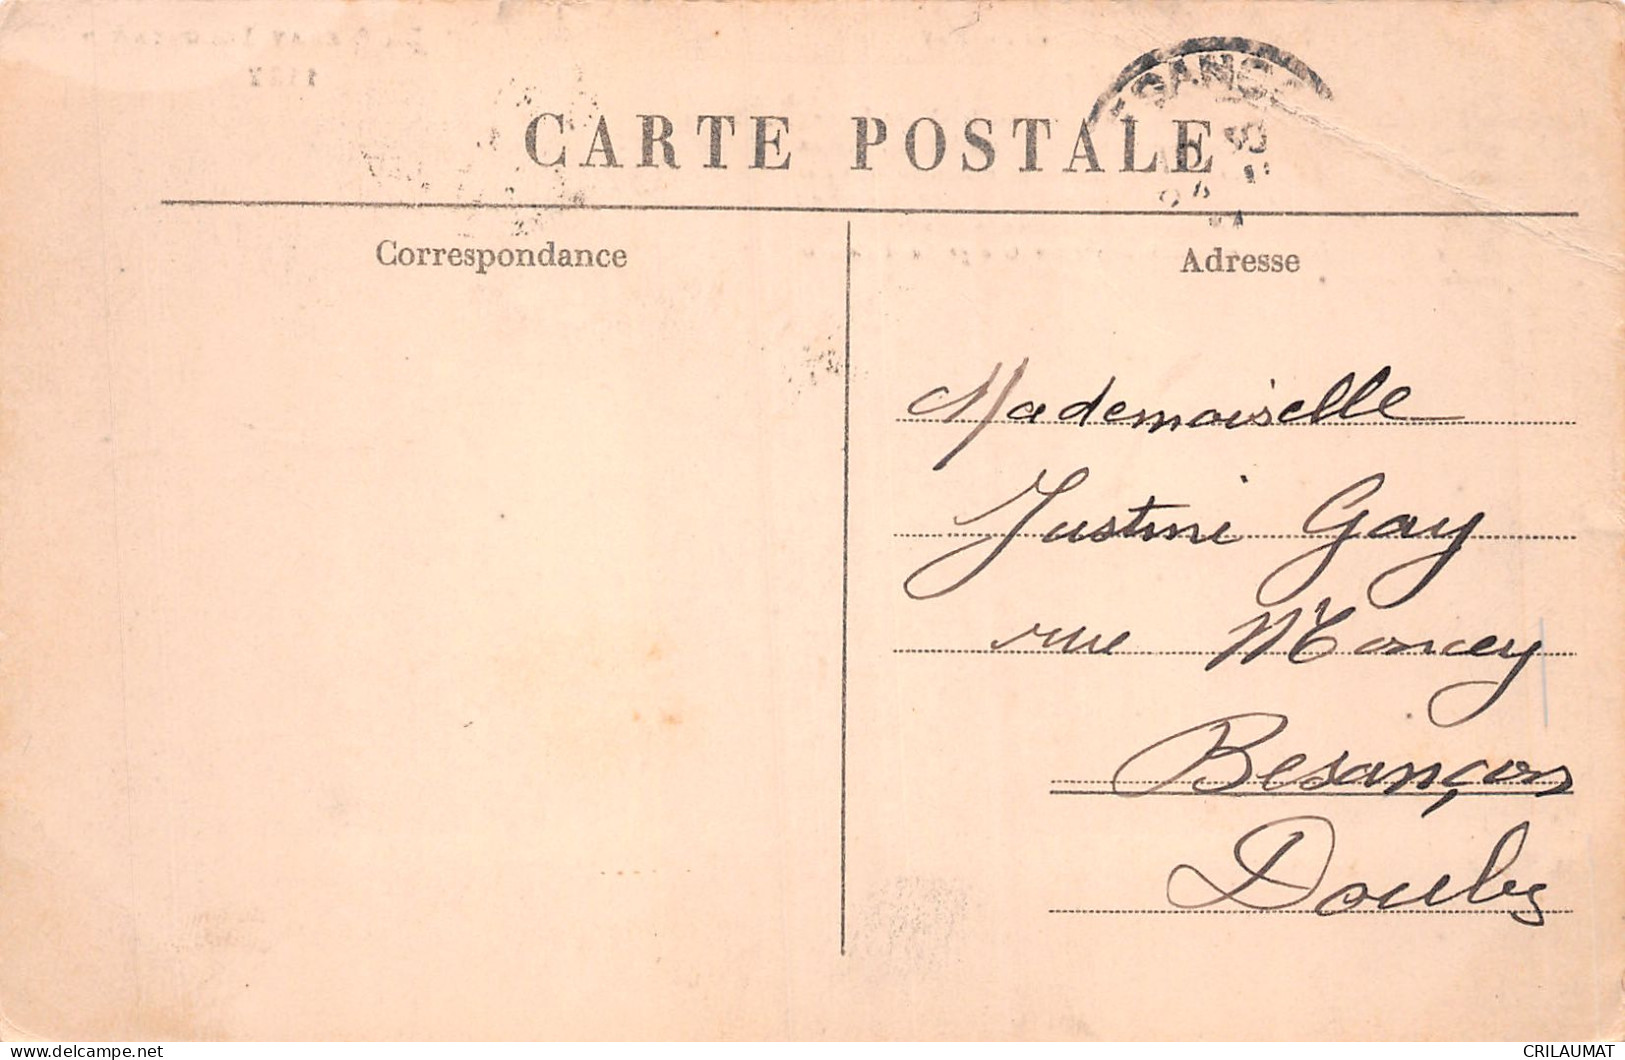 CARTE POSTALE
Correspondance
Adresse
Mademoiselle
Justine Gay
rue Moncey
Besançon
Doubs
CRILAUMAT